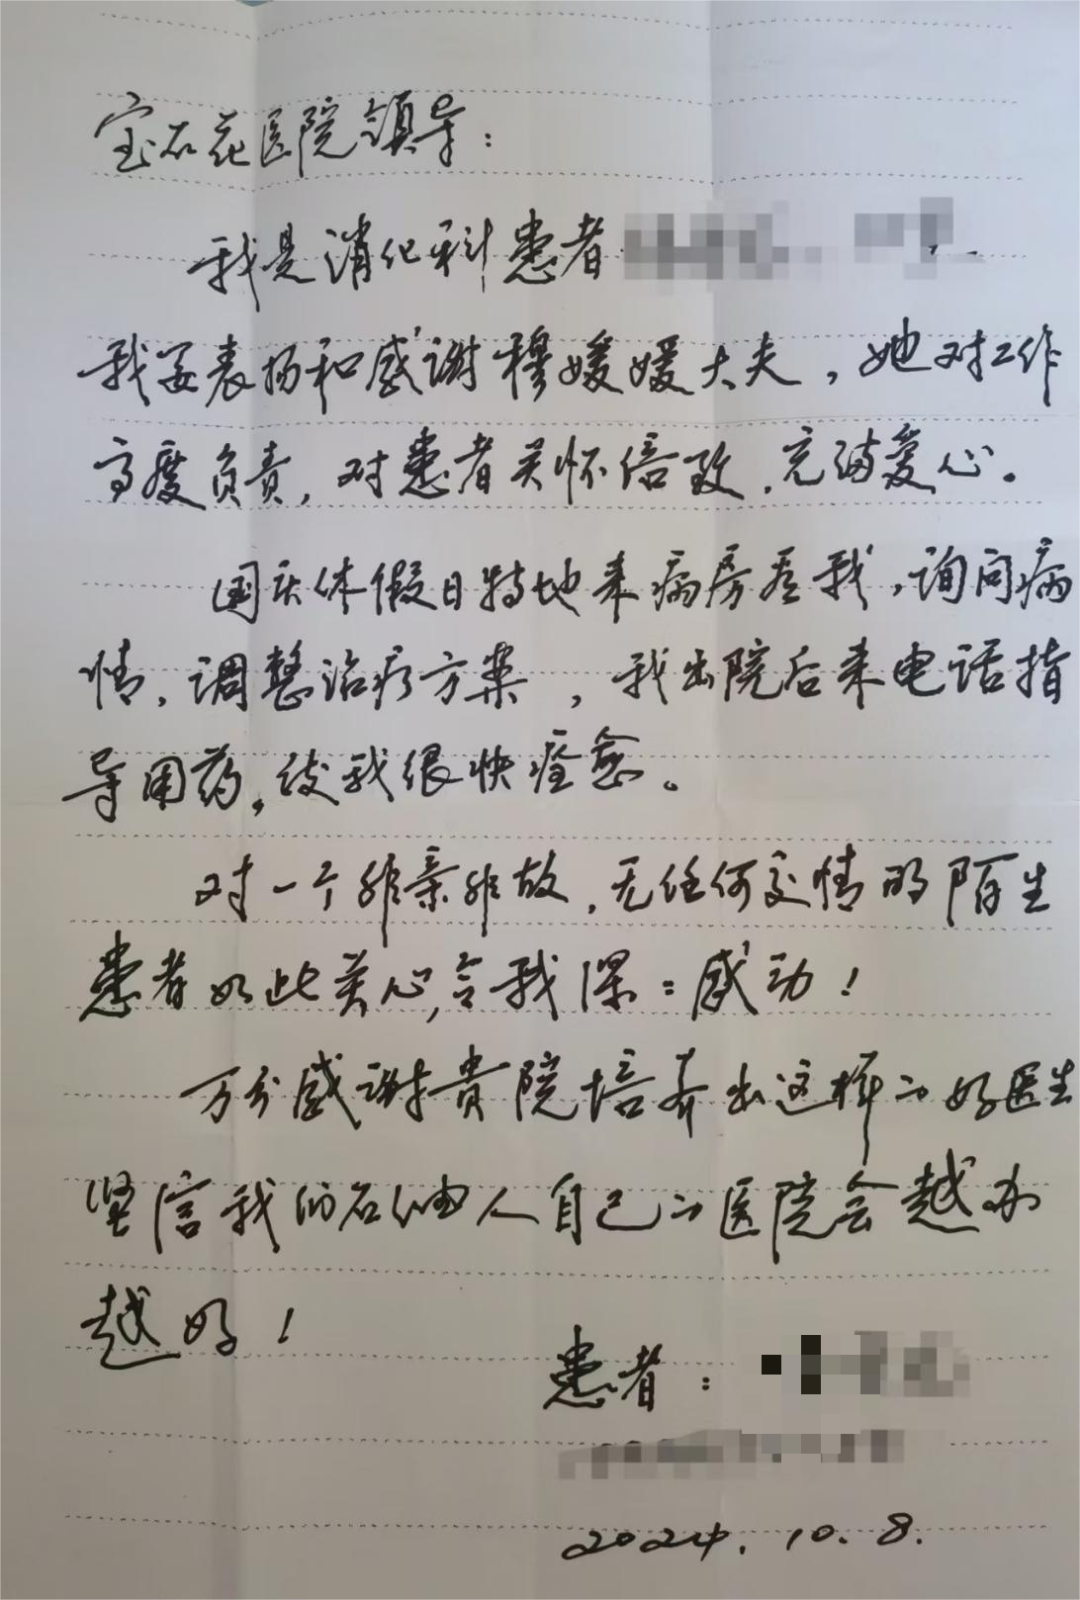 宝石花医院领导：
我是消化科患者
我要表扬和感谢穆媛媛大夫，她对工作
高度负责，对患者关怀倍致，充满爱心。
国庆休假日特地来病房看我，询问病
情，调整治疗方案，我出院后来电话指
导用药，使我很快痊愈。
对一个非亲非故，无任何交情的陌生
患者如此关心，令我深：感动！
万分感谢贵院培养出这样的好医生
坚信我们石油人自己的医院会越办
越好！
患者：
2024.10.8.